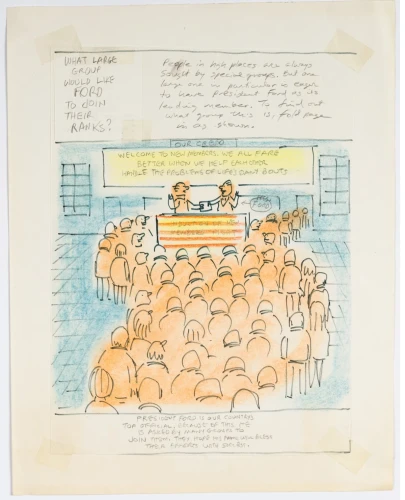 WHAT LARGE
GROUP
WOULD LIKE
FORD
TO JOIN
THEIR
RANKS?
People in high places are always
sought by special groups. But one
large one in particular is eager
to have President Ford as its
leading member. To find out
what group this is, fold page
in as shown.
OUR CREDO
WELCOME TO NEW MEMBERS. WE ALL FARE
BETTER WHEN WE HELP EACH OTHER
HANDLE THE PROBLEMS OF LIFE'S DAILY BOUTS
PRESIDENT FORD IS OUR COUNTRY'S
TOP OFFICIAL. BECAUSE OF THIS, HE
IS ASKED BY MANY GROUPS TO
JOIN THEM. THEY HOPE HIS
THEIR WITH